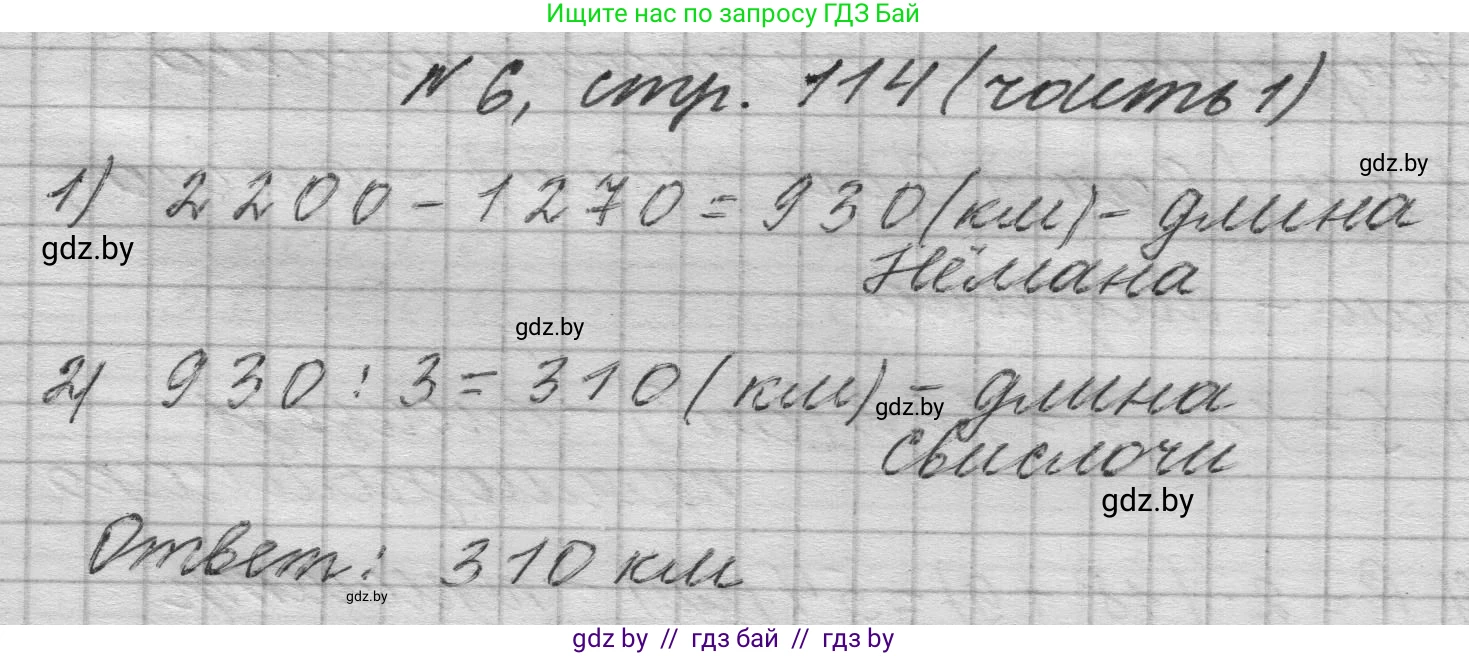 Ищите нас по запросу ГДЗ Бай
№ 6, стр. 114 (часть 1)
gdz.by
1) 2200 - 1270 = 930 (км) - длина
gdz.by
Нёмана
gdz.by
2) 930 : 3 = 310 (км) - длина
gdz.by
Свислочи
gdz.by
Ответ: 310 км
gdz.by
gdz by // гдз бай // гдз by